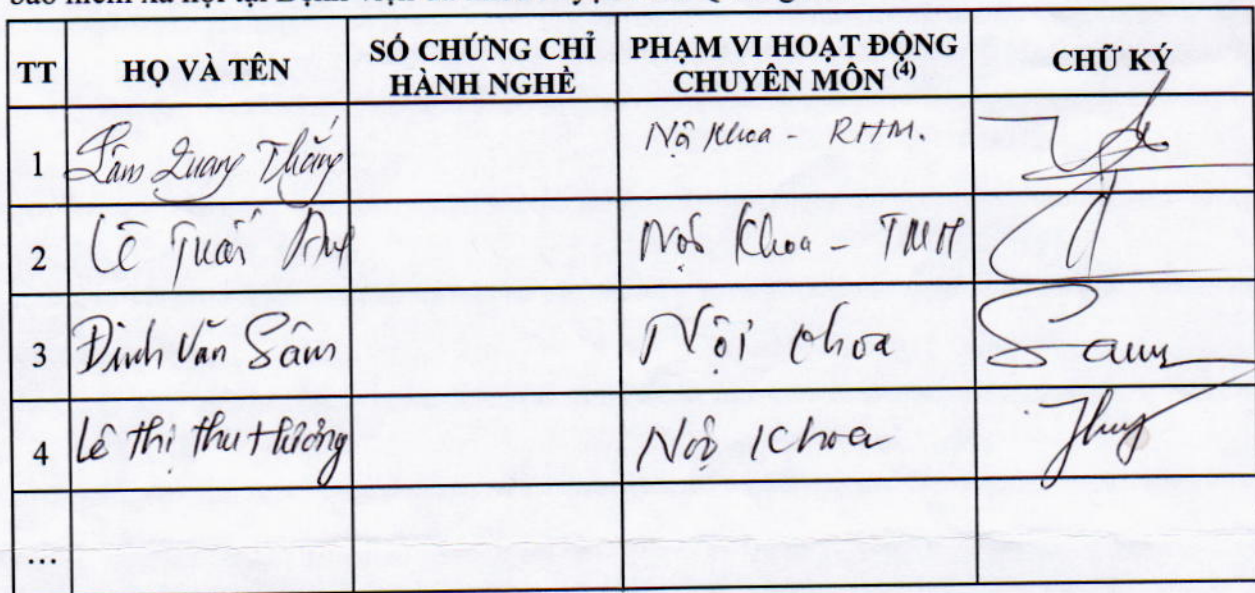 TT HỌ VÀ TÊN SỐ CHỨNG CHỈ HÀNH NGHỀ PHẠM VI HOẠT ĐỘNG CHUYÊN MÔN (4) CHỮ KÝ
1 Lâm Quang Thắng Nội Khoa - RHM.
2 Lê Tuấn Nội Khoa - TMH
3 Đinh Văn Sâm Nội khoa Sam
4 Lê Thị Thu Hường Nội Khoa
...